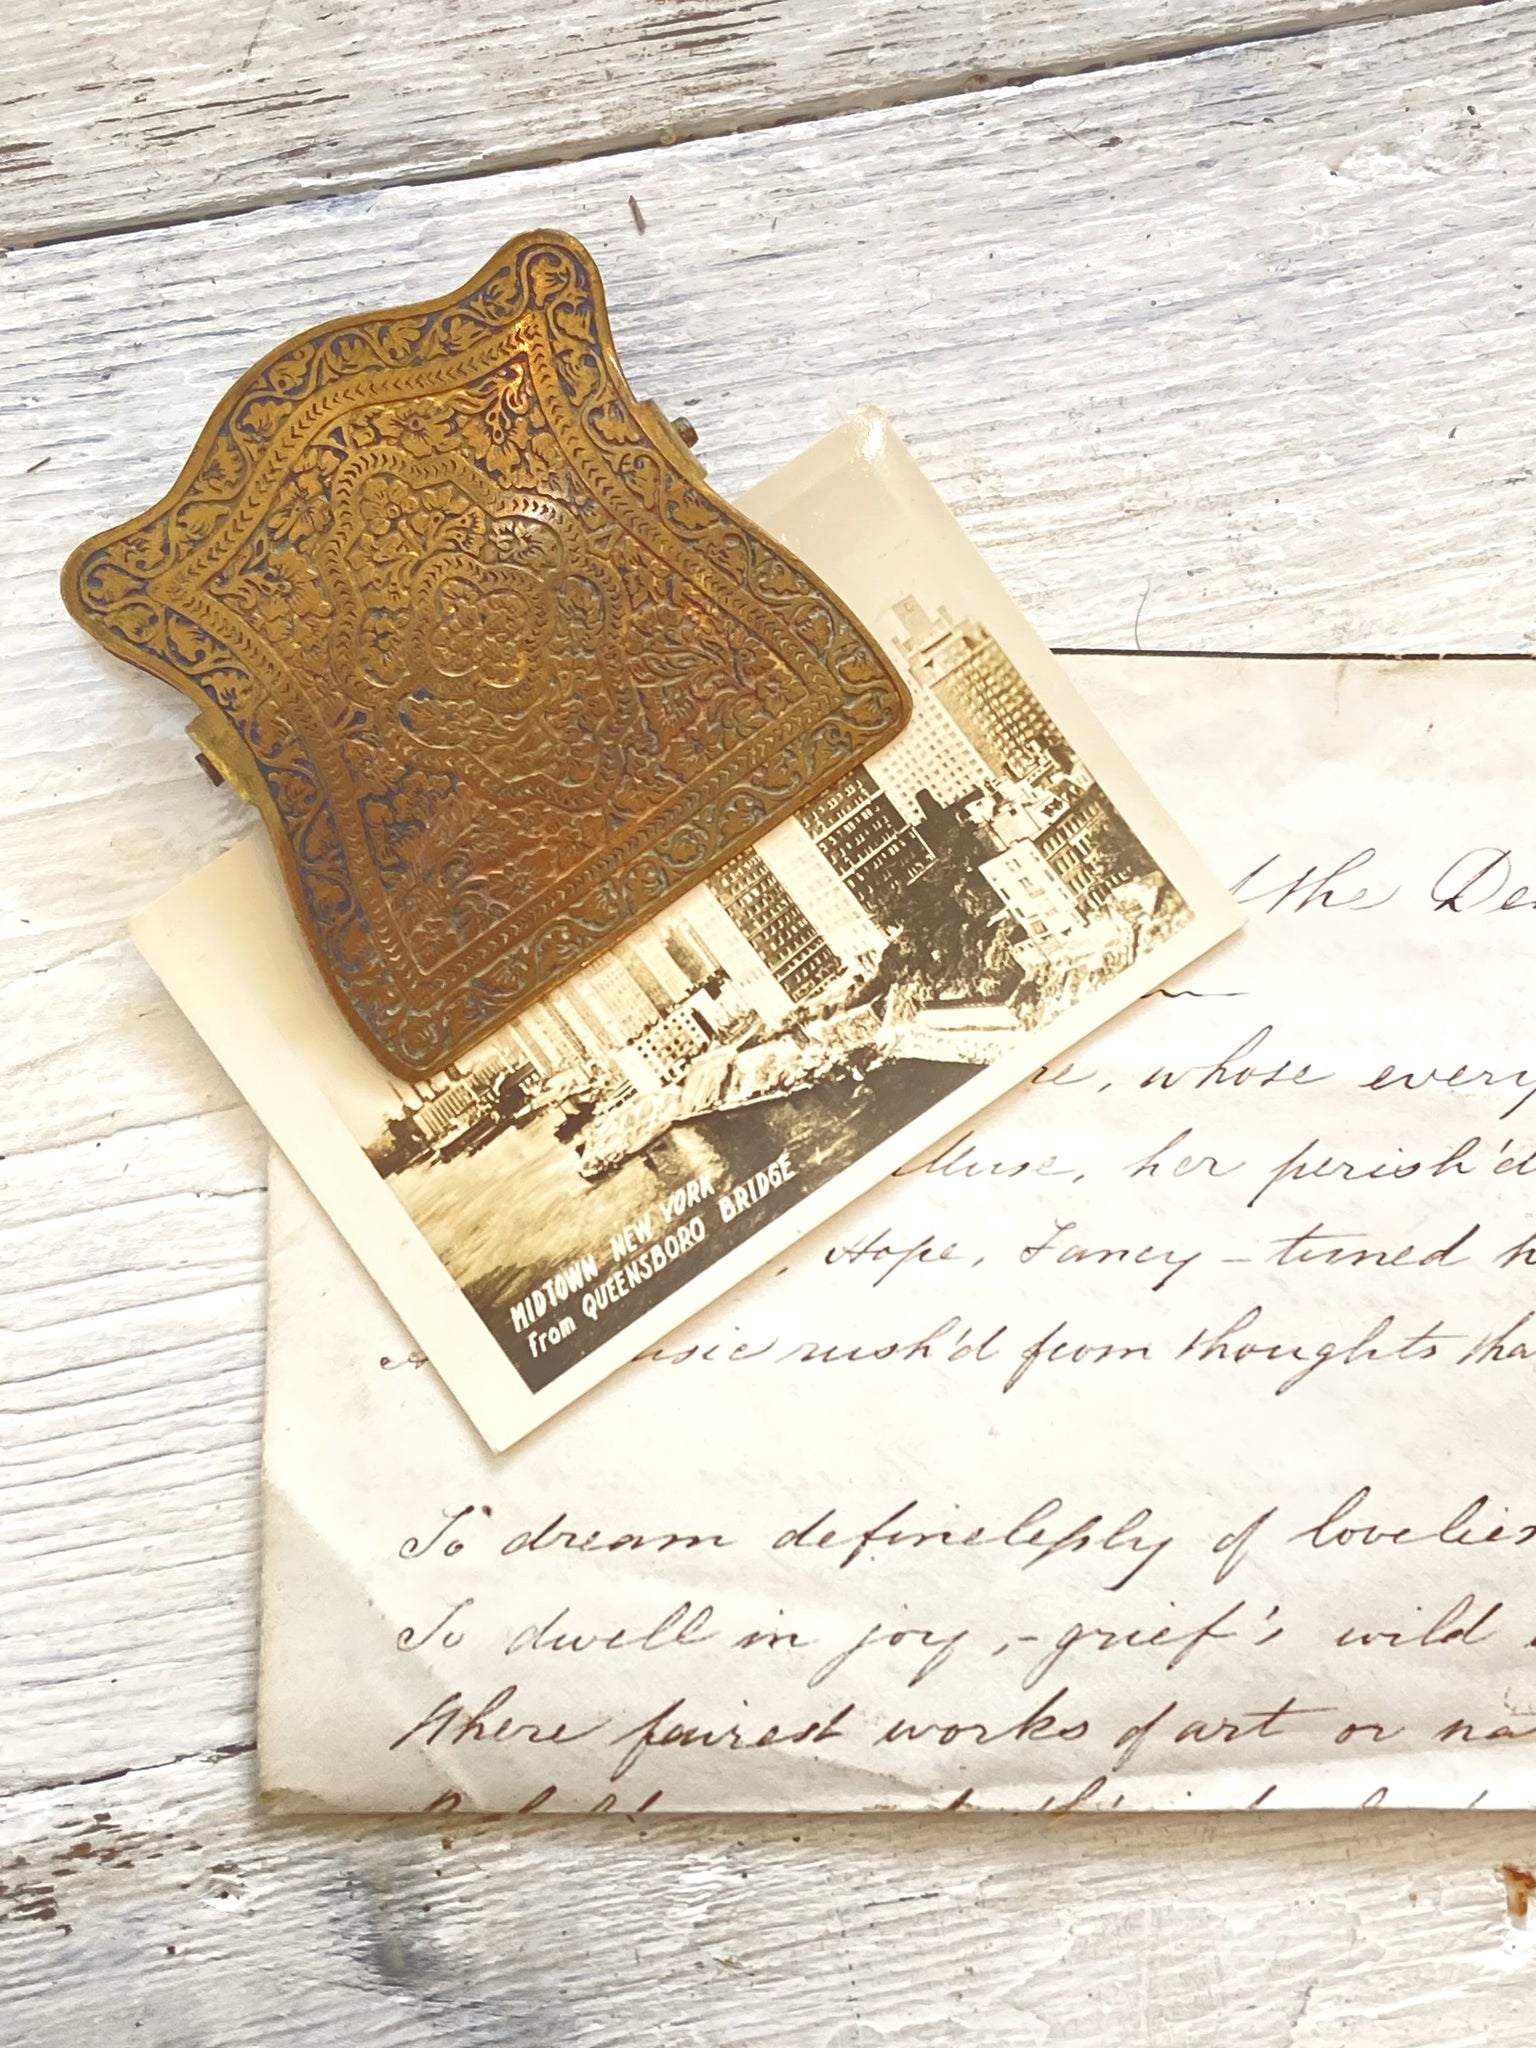 MIDTOWN NEW YORK
from QUEENSBORO BRIDGE
the
whose every
Muse, her perish'd
Hope, Fancy - tuned
rush'd from thoughts
To dream definelessly of
To dwell in joy, - grief's wild
Where fairest works of art or